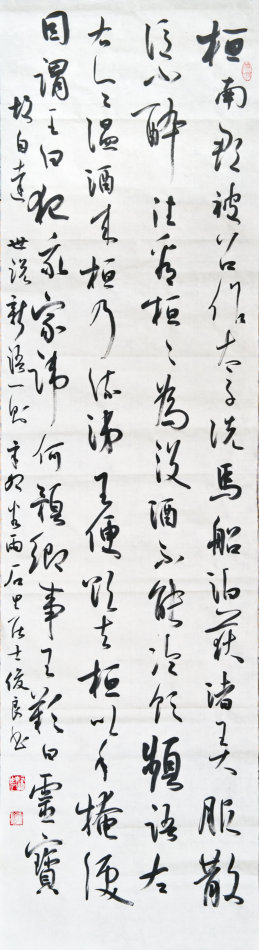 桓南郡被召作太子洗馬船泊荻渚王大服散
後已小醉往看桓々為設酒不能冷飲頻語左
右令溫酒來桓乃流涕王便欲去桓以手掩淚
因謂王曰犯我家諱何預卿事王歎曰靈寶
故自達 世說新語一則 居士俊良書